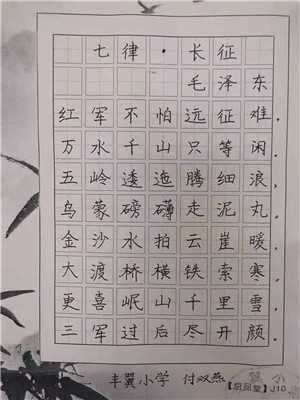 七律·长征
毛泽东
红军不怕远征难，
万水千山只等闲。
五岭逶迤腾细浪，
乌蒙磅礴走泥丸。
金沙水拍云崖暖，
大渡桥横铁索寒。
更喜岷山千里雪，
三军过后尽开颜。
丰翼小学 付双燕
J10